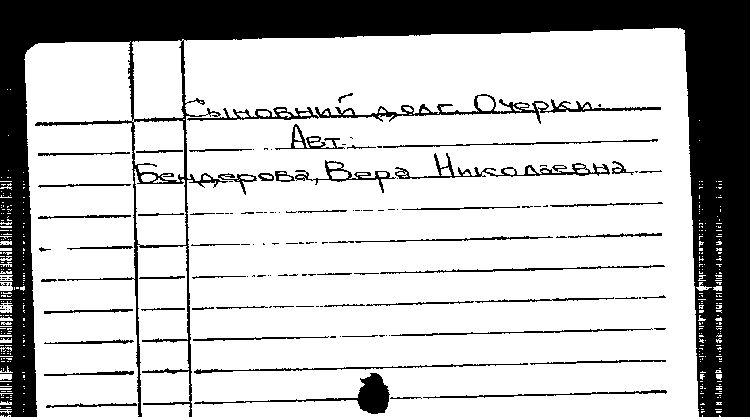 Сыновний долг. Очерки.
Авт.:
Бендерова, Вера Николаевна